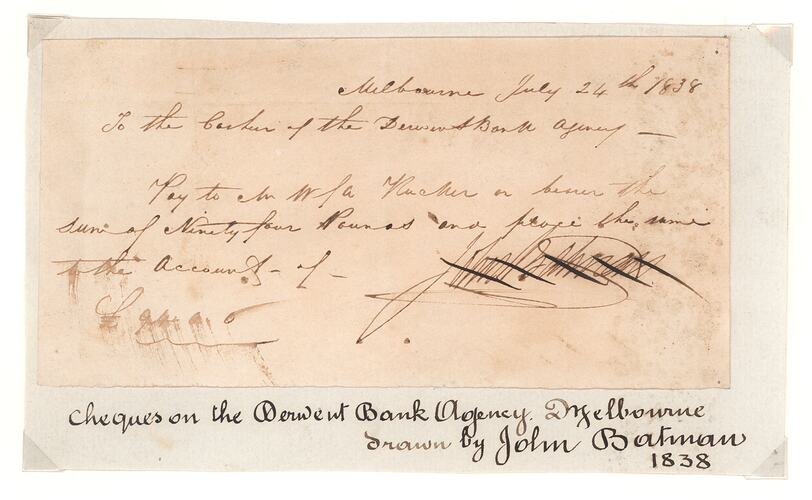 Melbourne July 24th 1838
To the Casher of the Derwent Bank Agency —
Pay to Mr W F A Rucker or bearer the
sum of Ninety four Pounds and place the same
to the Account - of -
John Batman
£94..0..0
Cheques on the Derwent Bank Agency. Melbourne
drawn by John Batman
1838